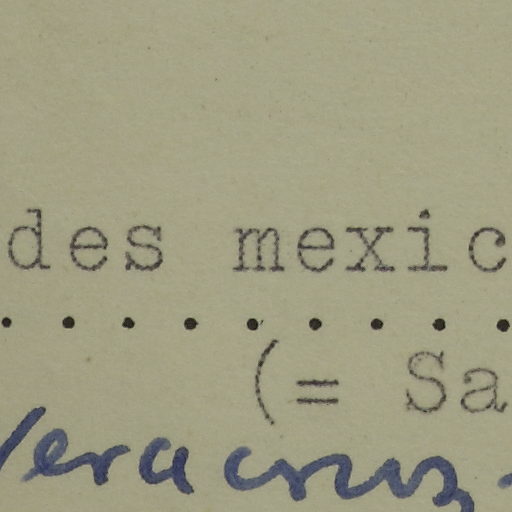 des mexic
. . . . . . . . .
(= Sa
Veracruz